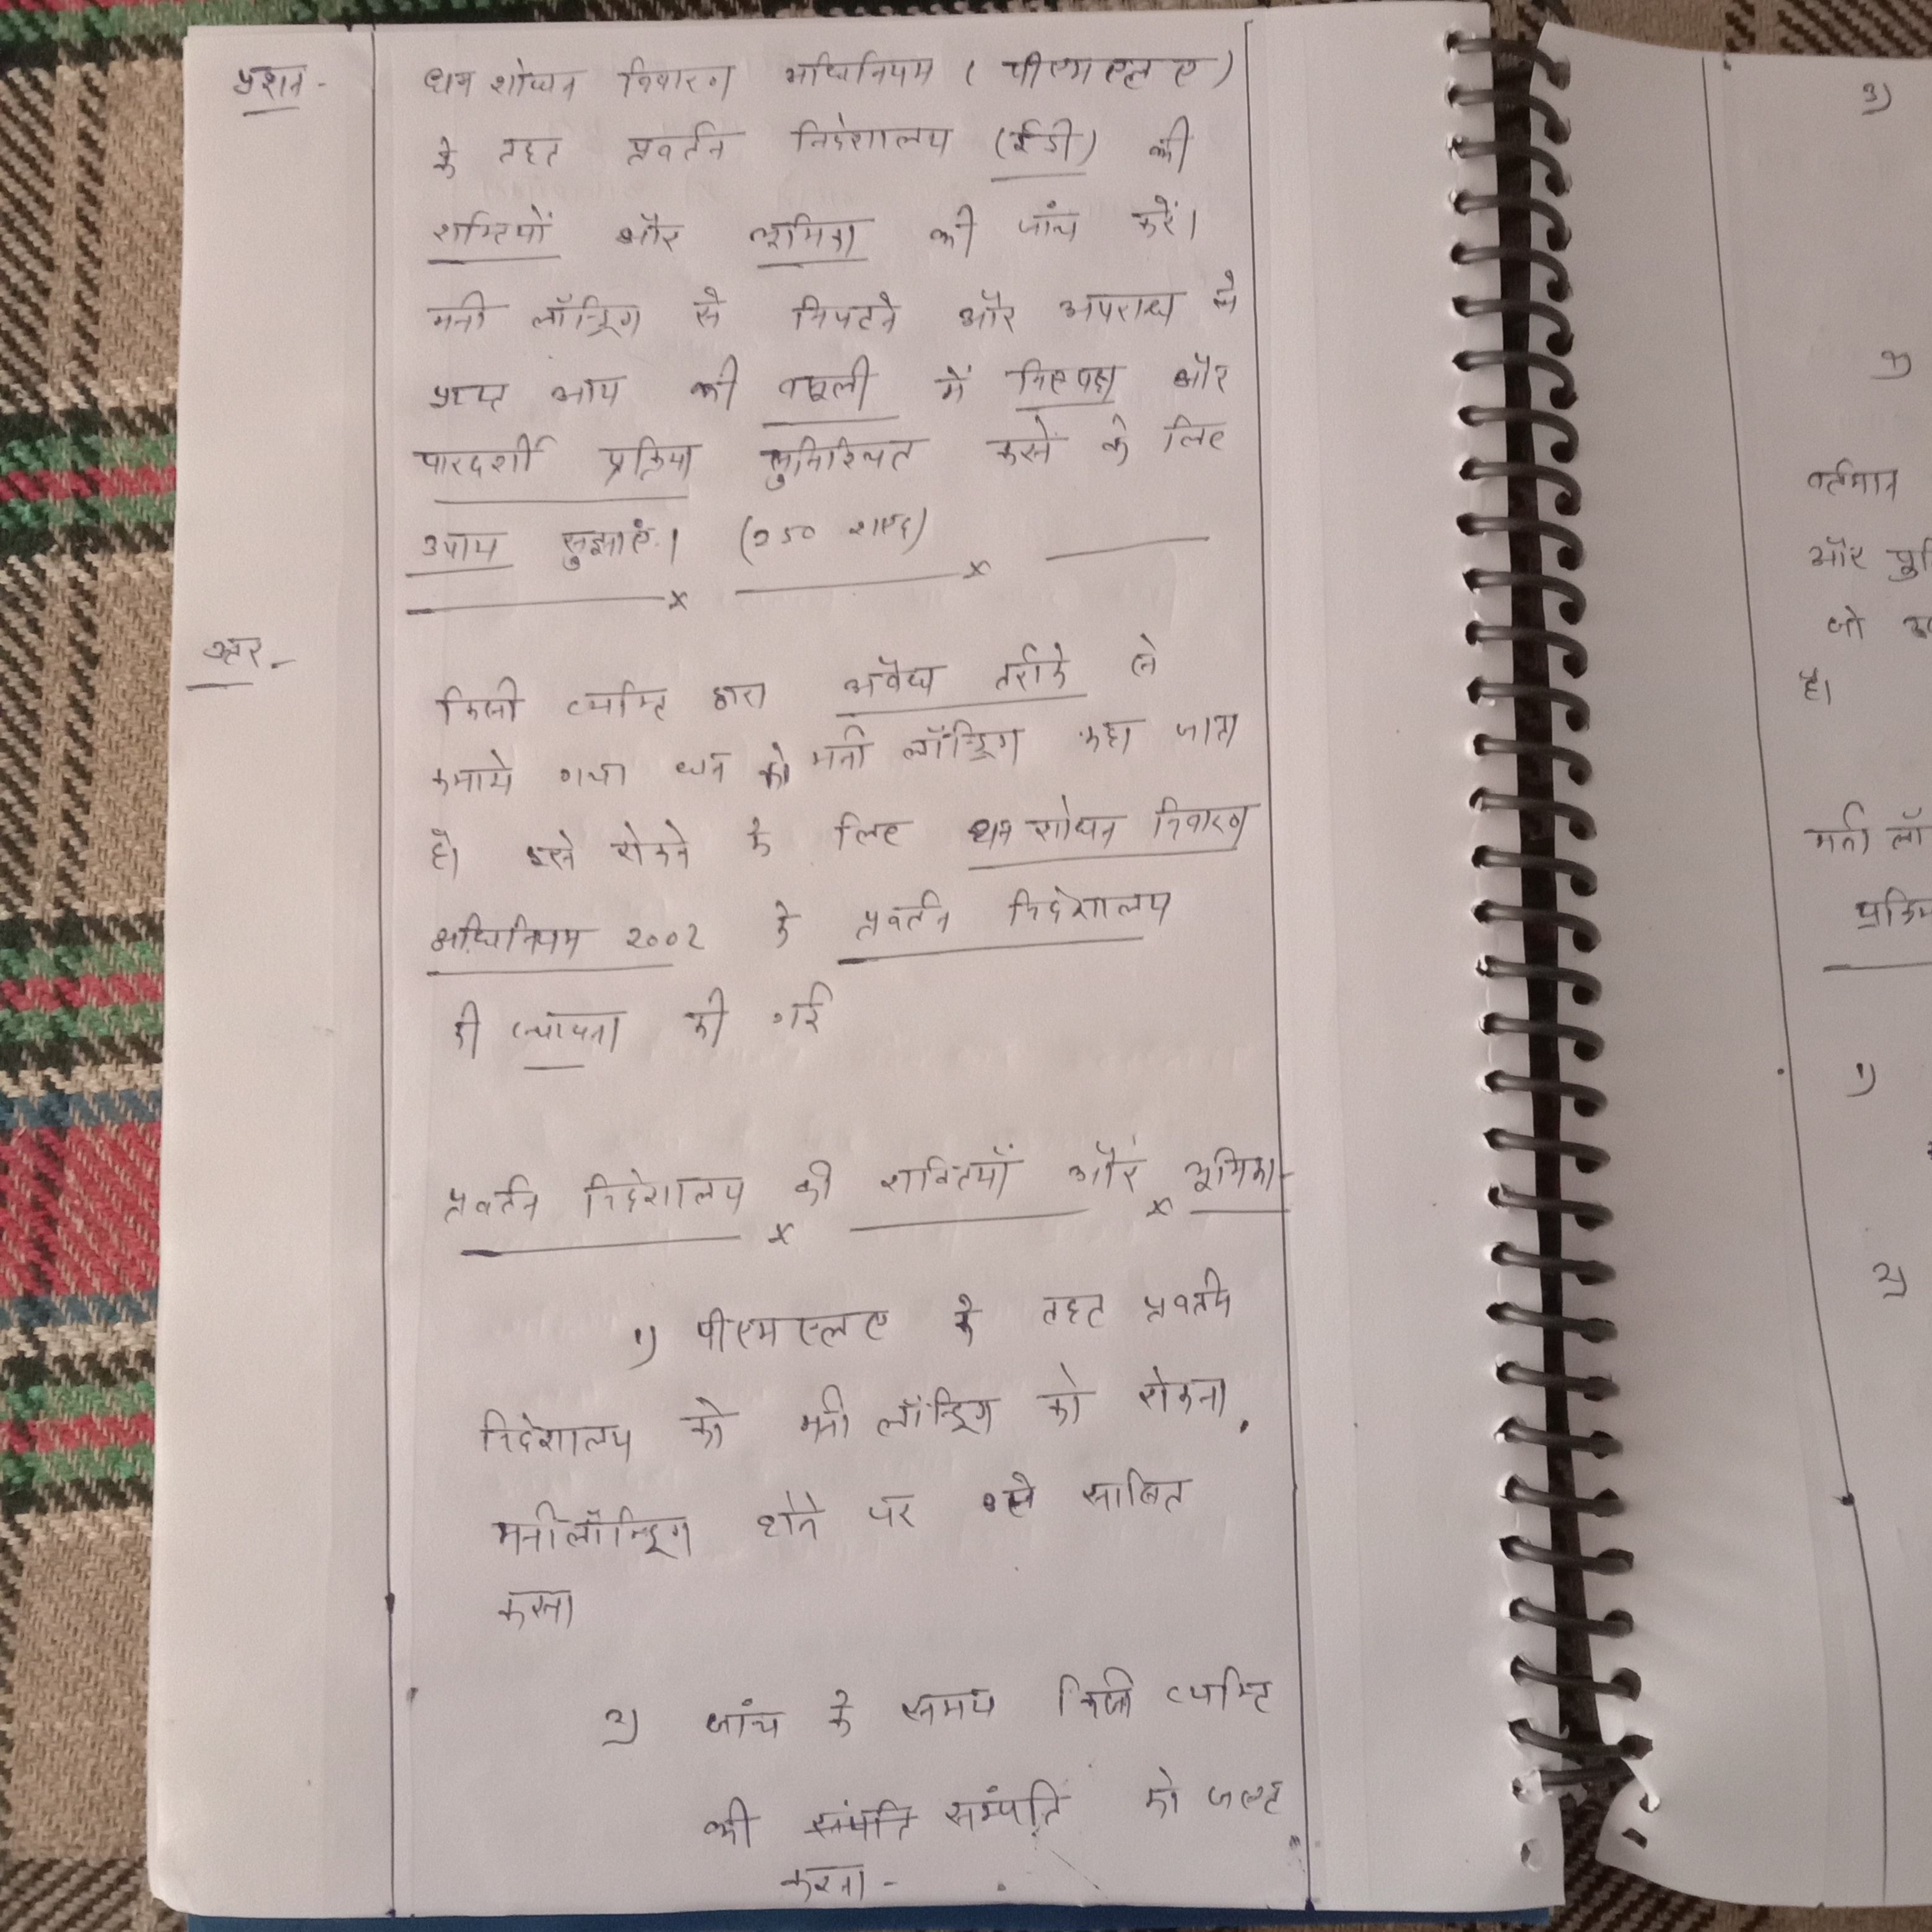 प्रशन -
धन शोधन निवारण अधिनियम (पीएमएलए)
के तहत प्रवर्तन निदेशालय (ईडी) की
शक्तियों और भूमिका की जांच करें।
मनी लॉन्ड्रिग से निपटने और अपराध से
प्राप्त आय की वसूली में निष्पक्ष और
पारदर्शी प्रक्रिया सुनिश्चित करने के लिए
उपाय सुझाएं। (250 शब्द)
उत्तर -
किसी व्यक्ति द्वारा अवैध तरीके से
कमाये गया धन को मनी लॉन्ड्रिग कहा जाता
है। इसे रोकने के लिए धन शोधन निवारण
अधिनियम 2002 के प्रवर्तन निदेशालय
की स्थापना की गई
प्रवर्तन निदेशालय की शक्तियाँ और भूमिका-
1) पीएमएलए के तहत प्रवर्तन
निदेशालय को मनी लॉन्ड्रिग को रोकना,
मनीलॉन्ड्रिग होने पर उसे साबित
करना
2) जांच के समय किसी व्यक्ति
की संपत्ति सम्पति को जब्त
करना -
3)
4)
वर्तमान
और
जो
है।
मनी लॉ
1)
2)